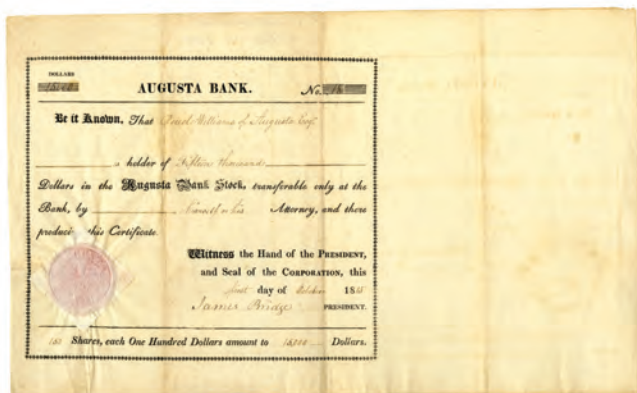 DOLLARS
AUGUSTA BANK. No. 16
Be it Known, That Williams of Augusta Esqr
is holder of Fifteen thousand
Dollars in the Augusta Bank Stock, transferable only at the
Bank, by himself or his Attorney, and there
producing this Certificate.
Witness the Hand of the PRESIDENT,
and Seal of the CORPORATION, this
first day of October 18
James Bridge PRESIDENT.
150 Shares, each One Hundred Dollars amount to 15,000 Dollars.